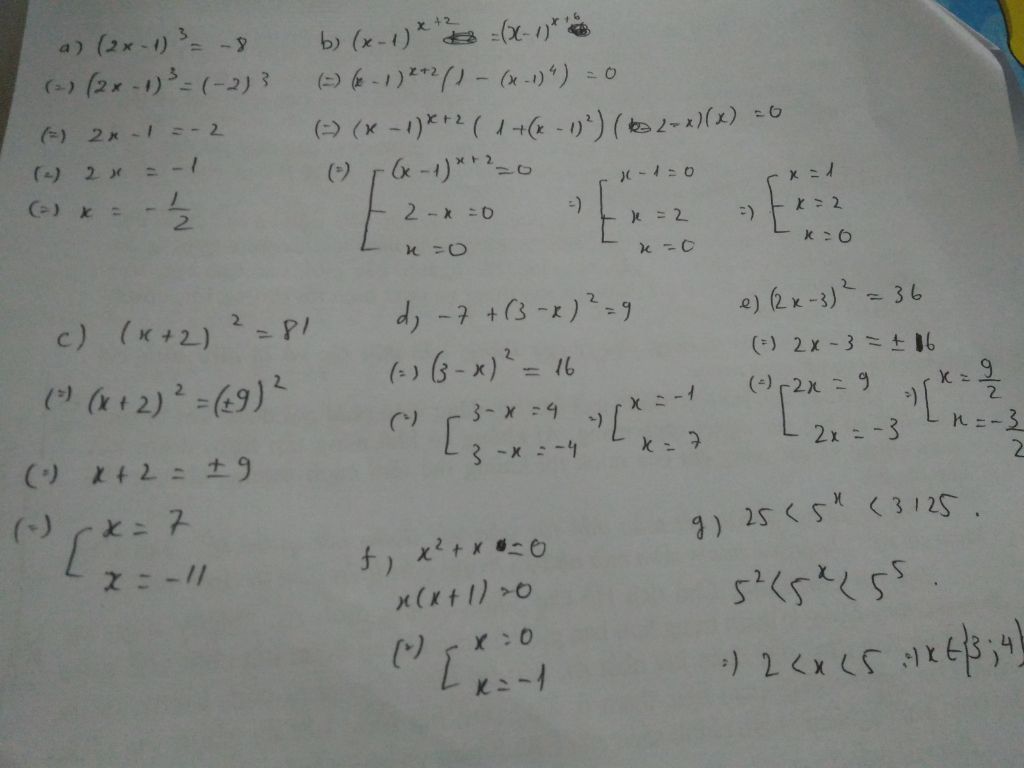 a) (2x-1)³ = -8
(=) (2x-1)³ = (-2)³
(=) 2x-1 = -2
(=) 2x = -1
(=) x = -1/2
b) (x-1)^x+2 = (x-1)^x+6
(=) (x-1)^x+2 (1 - (x-1)⁴) = 0
(=) (x-1)^x+2 (1+(x-1)²) (2-x)(x) = 0
(=) [ (x-1)^x+2 = 0 =) [ x-1 = 0 =) [ x = 1
2-x = 0 x = 2 x = 2
x = 0 x = 0 x = 0
c) (x+2)² = 81
(=) (x+2)² = (±9)²
(=) x+2 = ±9
(=) [ x = 7
x = -11
d, -7 + (3-x)² = 9
(=) (3-x)² = 16
(=) [ 3-x = 4 =) [ x = -1
3-x = -4 x = 7
e) (2x-3)² = 36
(=) 2x-3 = ± 6
(=) [ 2x = 9 =) [ x = 9/2
2x = -3 x = -3/2
f, x² + x = 0
x(x+1) = 0
(=) [ x = 0
x = -1
g) 25 < 5^x < 3125.
5² < 5^x < 5⁵.
=) 2 < x < 5 =) x ∈ {3; 4}